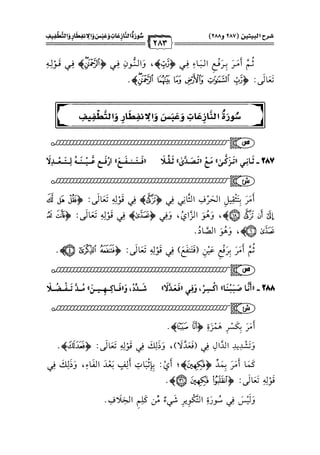 شرح البيتين (٢٨٧ و٢٨٨)
٢٨٣
سُورَةُ النَّازِعَاتِ وَعَبَسَ وَالِانفِطَارِ وَالتَّطْفِيفِ
ثُمَّ أَمَرَ بِرَفْعِ الْبَاءِ فِي ﴿رَّبِّ﴾، وَالنُّونِ فِي ﴿الرَّحْمَٰنِ﴾ فِي قَوْلِهِ
تَعَالَى: ﴿رَّبِّ السَّمَاوَاتِ وَالْأَرْضِ وَمَا بَيْنَهُمَا الرَّحْمَٰنِ﴾.
سُورَةُ النَّازِعَاتِ وَعَبَسَ وَالِانفِطَارِ وَالتَّطْفِيفِ
٢٨٧ - ثَانِيَ «تَزَكَّىٰ» مَعْ «تَصَدَّىٰ» ثَقِّلَا «فَتَنْفَعُ» ارْفَعْ نَصْبَهُ لِتَعْدِلَا
أَمَرَ بِتَثْقِيلِ الْحَرْفِ الثَّانِي فِي ﴿تَزَكَّىٰ﴾ فِي قَوْلِهِ تَعَالَى: ﴿فَقُلْ هَل لَّكَ
إِلَىٰ أَن تَزَكَّىٰ ۝١٨﴾، وَهُوَ الزَّايُ، وَفِي ﴿تَصَدَّىٰ﴾ فِي قَوْلِهِ تَعَالَى: ﴿فَأَنتَ لَهُ
تَصَدَّىٰ ۝٦﴾، وَهُوَ الصَّادُ.
ثُمَّ أَمَرَ بِرَفْعِ عَيْنِ (فَتَنفَعَ) فِي قَوْلِهِ تَعَالَى: ﴿فَتَنفَعَهُ الذِّكْرَىٰ ۝٤﴾.
٢٨٨ - «أَنَّا صَبَبْنَا» اكْسِرْ، وَفِي «فَعَدَّلَا» شُدَّ، وَ«فَاكِهِينَ» مُدَّ تَفْضُلَا
أَمَرَ بِكَسْرِ هَمْزَةِ ﴿أَنَّا صَبَبْنَا﴾.
وَتَشْدِيدِ الدَّالِ فِي (فَعَدَّلَا)، وَكَذَلِكَ فِي قَوْلِهِ تَعَالَى: ﴿فَعَدَلَكَ﴾.
كَمَا أَمَرَ بِمَدِّ ﴿فَكِهِينَ﴾؛ أَيْ: بِإِثْبَاتِ أَلِفٍ بَعْدَ الفَاءِ، وَذَلِكَ فِي
قَوْلِهِ تَعَالَى: ﴿انقَلَبُوا فَكِهِينَ ۝٣١﴾.
وَلَيْسَ فِي سُورَةِ التَّكْوِيرِ شَيءٌ مِّن كَلِمِ الْخِلَافِ.